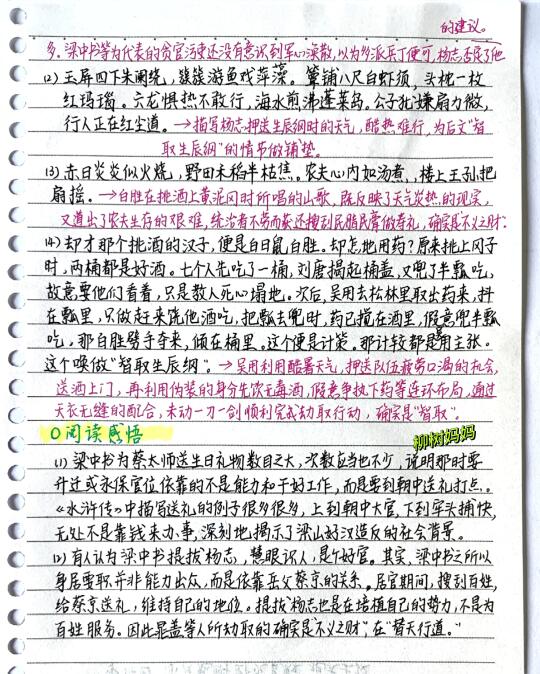 的建议。
多。梁中书等为代表的贪官污吏还没有意识到军心涣散，以为多派兵丁便可，杨志否定了他
(2) 玉屏四下朱阑绕，簇簇游鱼戏萍藻。簟铺八尺白虾须，头枕一枚
红玛瑙。六龙惧热不敢行，海水煎沸蓬莱岛。公子犹嫌扇力微，
行人正在红尘道。→描写杨志押送生辰纲时的天气，酷热难行，为后文"智
取生辰纲"的情节做铺垫。
(3) 赤日炎炎似火烧，野田禾稻半枯焦。农夫心内如汤煮，楼上王孙把
扇摇。→白胜在挑酒上黄泥冈时所唱的山歌，既反映了天气炎热的现实，
又道出了农夫生存的艰难，统治者不劳而获还搜刮民脂民膏做寿礼，确实是不义之财。
(4) 却才那个挑酒的汉子，便是白日鼠白胜。却怎地用药？原来挑上冈子
时，两桶都是好酒。七个人先吃了一桶，刘唐揭起桶盖，又兜了半瓢吃，
故意要他们看着，只是教人死心塌地。次后，吴用去松林里取出药来，抖
在瓢里，只做赶来饶他酒吃，把瓢去兜时，药已搅在酒里，假意兜半瓢
吃，那白胜劈手夺来，倾在桶里。这个便是计策。那计较都是吴用主张。
这个唤做"智取生辰纲"。→吴用利用酷暑天气，押送队伍疲劳口渴的机会，
送酒上门，再利用伪装的身分先饮无毒酒，假意争执下药等连环布局，通过
天衣无缝的配合，未动一刀一剑顺利完成劫取行动，确实是"智取"。
○阅读感悟
柳树妈妈
(1) 梁中书为蔡太师送生日礼物数目之大，次数应当也不少，说明那时要
升迁或永保官位依靠的不是能力和干好工作，而是要到朝中送礼打点。
《水浒传》中描写送礼的例子很多很多，上到朝中大官，下到牢头捕快，
无处不是靠钱来办事，深刻地揭示了梁山好汉造反的社会背景。
(2) 有人认为梁中书提拔杨志，慧眼识人，是个好官。其实，梁中书之所以
身居要职并非能力出众，而是依靠岳父蔡京的关系。居官期间，搜刮百姓，
给蔡京送礼，维持自己的地位。提拔杨志也是在培植自己的势力，不是为
百姓服务。因此晁盖等人所劫取的确实是"不义之财"，在"替天行道。"